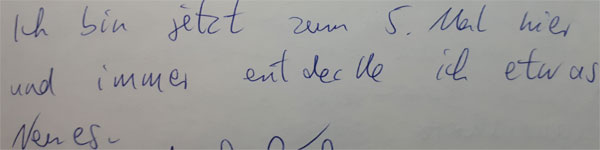 Ich bin jetzt zum 5. Mal hier
und immer entdecke ich etwas
Neues.